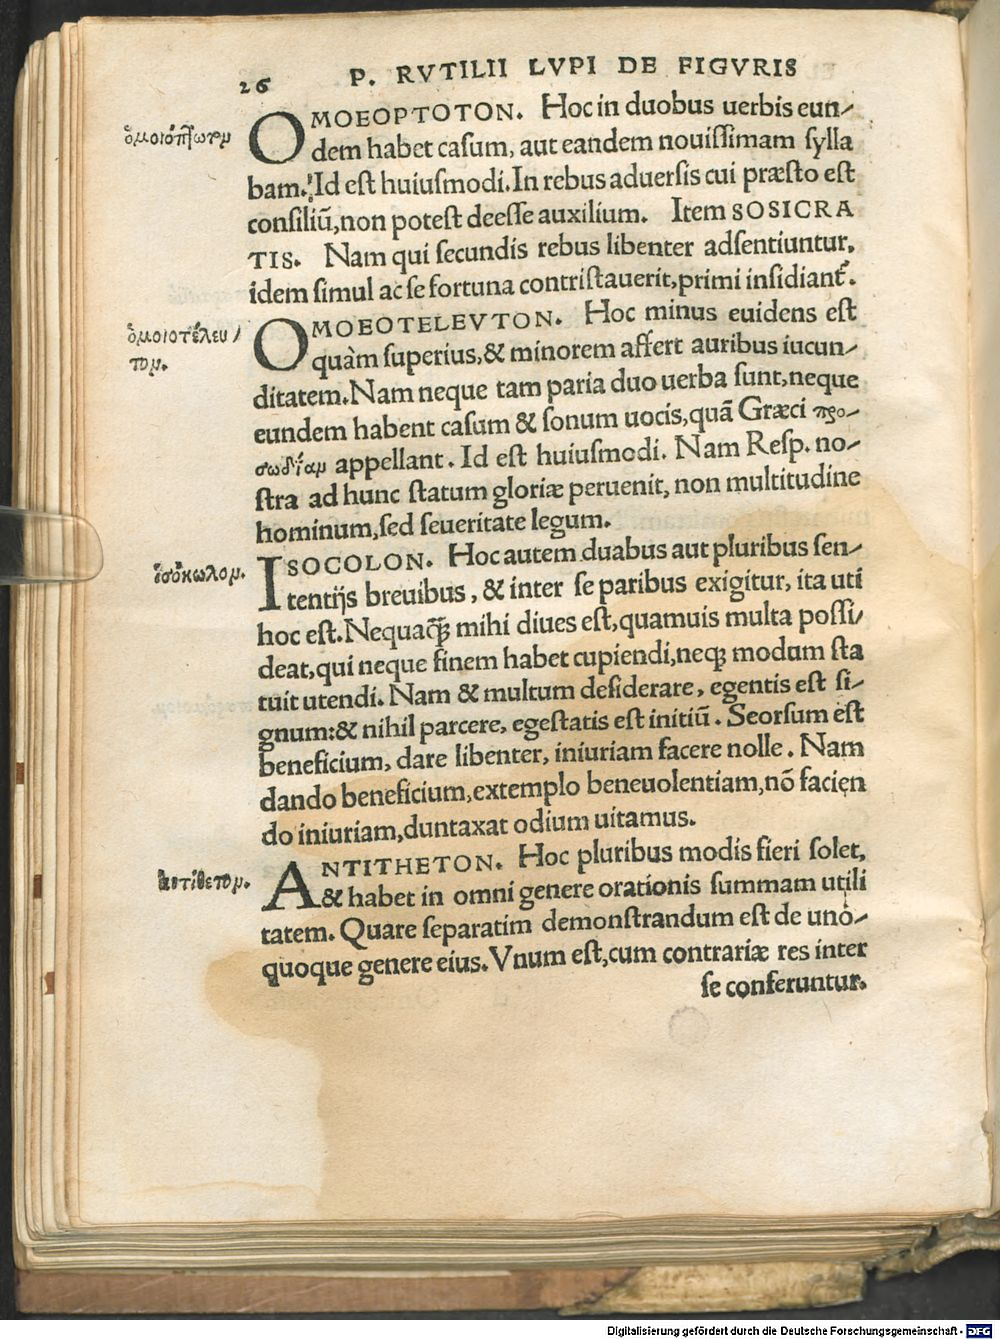 26 P. RVTILII LVPI DE FIGVRIS
ὁμοιόπτωτομ
OMOEOPTOTON. Hoc in duobus uerbis eun-
dem habet casum, aut eandem nouissimam sylla
bam. Id est huiusmodi. In rebus aduersis cui præsto est
consiliū, non potest deesse auxilium. Item SOSICRA
TIS. Nam qui secundis rebus libenter adsentiuntur,
idem simul ac se fortuna contristauerit, primi insidiant̃.
ὁμοιοτέλευ/
τομ.
OMOEOTELEVTON. Hoc minus euidens est
quàm superius, & minorem affert auribus iucun-
ditatem. Nam neque tam paria duo uerba sunt, neque
eundem habent casum & sonum uocis, quā Græci προ-
σωδίαμ appellant. Id est huiusmodi. Nam Resp. no-
stra ad hunc statum gloriæ peruenit, non multitudine
hominum, sed seueritate legum.
ἰσόκωλομ.
ISOCOLON. Hoc autem duabus aut pluribus sen-
tentijs breuibus, & inter se paribus exigitur, ita uti
hoc est. Nequaq̃ꝫ mihi diues est, quamuis multa possi-
deat, qui neque finem habet cupiendi, neqꝫ modum sta
tuit utendi. Nam & multum desiderare, egentis est si-
gnum: & nihil parcere, egestatis est initiū. Seorsum est
beneficium, dare libenter, iniuriam facere nolle. Nam
dando beneficium, extemplo beneuolentiam, nō facien
do iniuriam, duntaxat odium uitamus.
ἀντίθετομ.
ANTITHETON. Hoc pluribus modis fieri solet,
& habet in omni genere orationis summam utili
tatem. Quare separatim demonstrandum est de uno-
quoque genere eius. Vnum est, cum contrariæ res inter
se conferuntur.
Digitalisierung gefördert durch die Deutsche Forschungsgemeinschaft - DFG